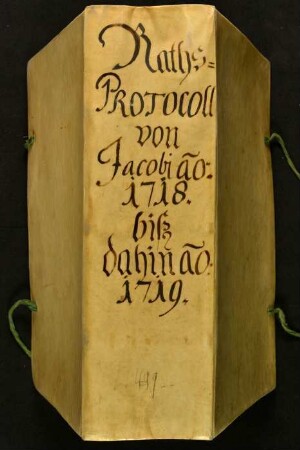 Raths=
PROTOCOLL
von
Jacobi ão:
1718.
biß
dahin ão:
1719.